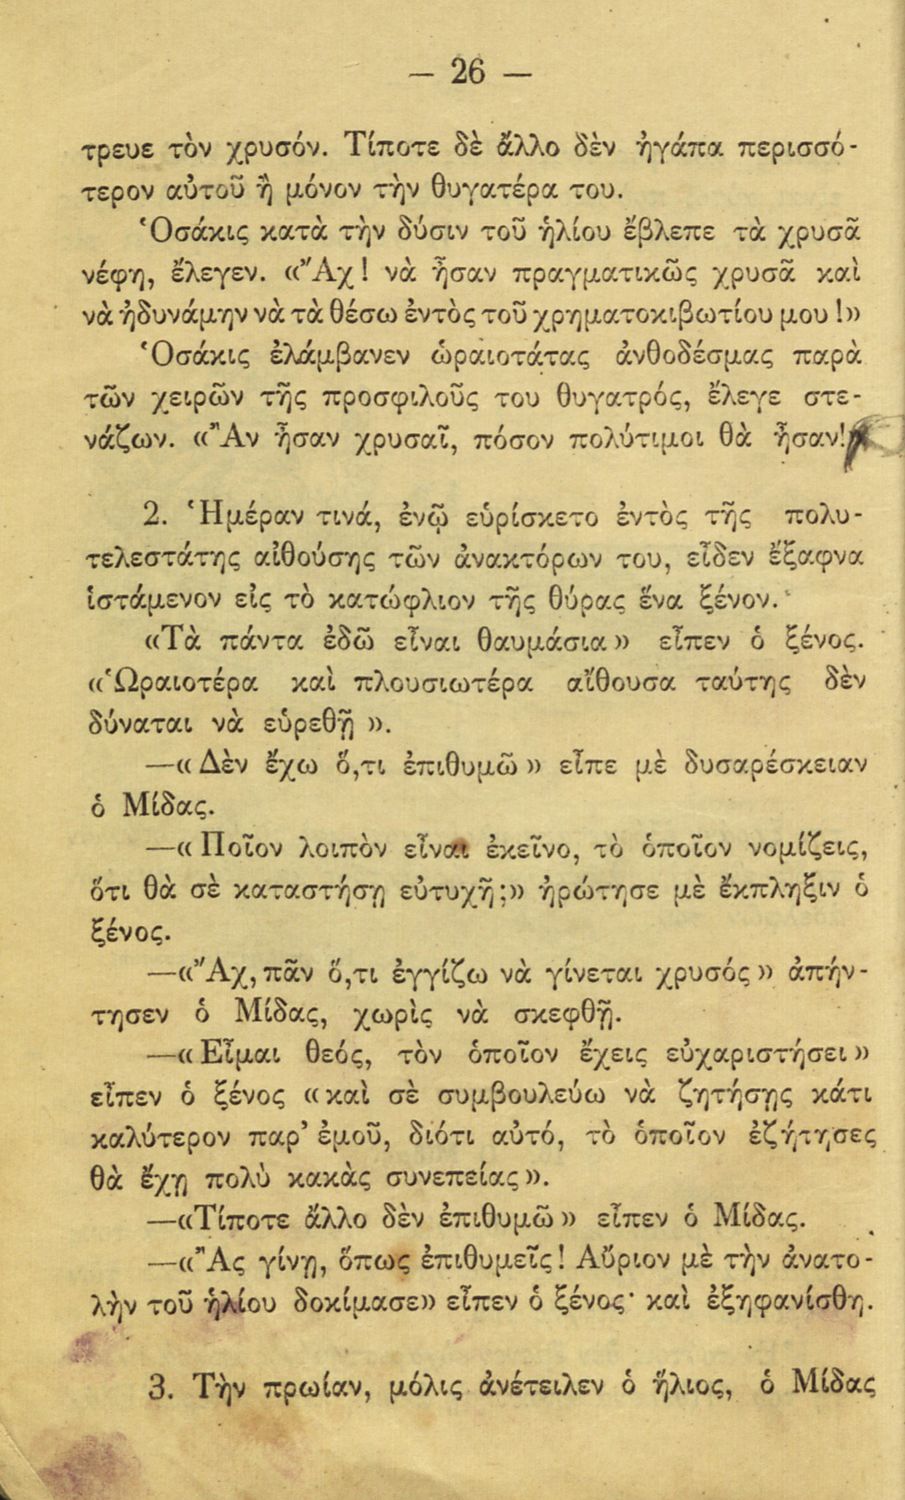 — 26 —
τρευε τὸν χρυσόν. Τίποτε δὲ ἄλλο δὲν ἠγάπα περισσό-
τερον αὐτοῦ ἢ μόνον τὴν θυγατέρα του.
Ὁσάκις κατὰ τὴν δύσιν τοῦ ἡλίου ἔβλεπε τὰ χρυσᾶ
νέφη, ἔλεγεν. «Ἂχ! νὰ ἦσαν πραγματικῶς χρυσᾶ καὶ
νὰ ἠδυνάμην νὰ τὰ θέσω ἐντὸς τοῦ χρηματοκιβωτίου μου!»
Ὁσάκις ἐλάμβανεν ὡραιοτάτας ἀνθοδέσμας παρὰ
τῶν χειρῶν τῆς προσφιλοῦς του θυγατρός, ἔλεγε στε-
νάζων. «Ἂν ἦσαν χρυσαῖ, πόσον πολύτιμοι θὰ ἦσαν!
2. Ἡμέραν τινά, ἐνῷ εὑρίσκετο ἐντὸς τῆς πολυ-
τελεστάτης αἰθούσης τῶν ἀνακτόρων του, εἶδεν ἔξαφνα
ἱστάμενον εἰς τὸ κατώφλιον τῆς θύρας ἕνα ξένον.
«Τὰ πάντα ἐδῶ εἶναι θαυμάσια» εἶπεν ὁ ξένος.
«Ὡραιοτέρα καὶ πλουσιωτέρα αἴθουσα ταύτης δὲν
δύναται νὰ εὑρεθῇ ».
—« Δὲν ἔχω ὅ,τι ἐπιθυμῶ» εἶπε μὲ δυσαρέσκειαν
ὁ Μίδας.
—« Ποῖον λοιπὸν εἶναι ἐκεῖνο, τὸ ὁποῖον νομίζεις,
ὅτι θὰ σὲ καταστήσῃ εὐτυχῆ;» ἠρώτησε μὲ ἔκπληξιν ὁ
ξένος.
—«Ἂχ, πᾶν ὅ,τι ἐγγίζω νὰ γίνεται χρυσός» ἀπήν-
τησεν ὁ Μίδας, χωρὶς νὰ σκεφθῇ.
—« Εἶμαι θεός, τὸν ὁποῖον ἔχεις εὐχαριστήσει»
εἶπεν ὁ ξένος «καὶ σὲ συμβουλεύω νὰ ζητήσῃς κάτι
καλύτερον παρ' ἐμοῦ, διότι αὐτό, τὸ ὁποῖον ἐζήτησες
θὰ ἔχῃ πολὺ κακὰς συνεπείας».
—«Τίποτε ἄλλο δὲν ἐπιθυμῶ» εἶπεν ὁ Μίδας.
—«Ἂς γίνῃ, ὅπως ἐπιθυμεῖς! Αὔριον μὲ τὴν ἀνατο-
λὴν τοῦ ἡλίου δοκίμασε» εἶπεν ὁ ξένος· καὶ ἐξηφανίσθη.
3. Τὴν πρωίαν, μόλις ἀνέτειλεν ὁ ἥλιος, ὁ Μίδας